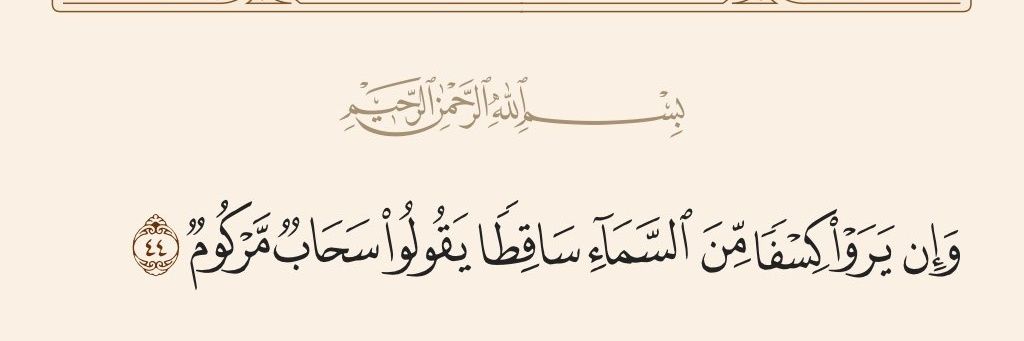 بِسْمِ ٱللَّهِ ٱلرَّحْمَٰنِ ٱلرَّحِيمِ
وَإِن يَرَوْا۟ كِسْفًا مِّنَ ٱلسَّمَآءِ سَاقِطًا يَقُولُوا۟ سَحَابٌ مَّرْكُومٌ ٤٤